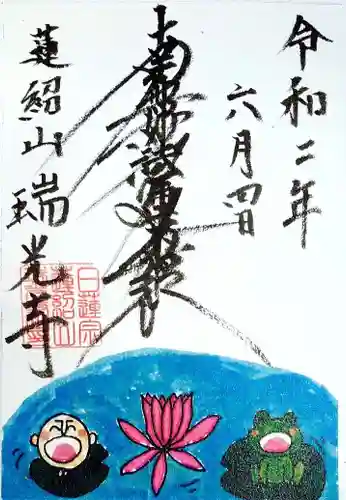 令和二年
六月四日
南無妙法蓮華経
蓮紹山瑞光寺
日蓮宗
蓮紹山
瑞光寺